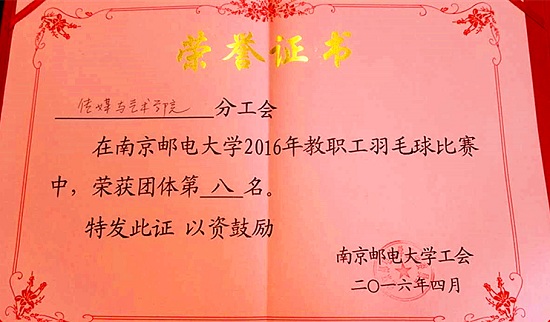 荣誉证书
传媒与艺术学院 分工会
在南京邮电大学2016年教职工羽毛球比赛
中，荣获团体第 八 名。
特发此证 以资鼓励
南京邮电大学工会
二〇一六年四月